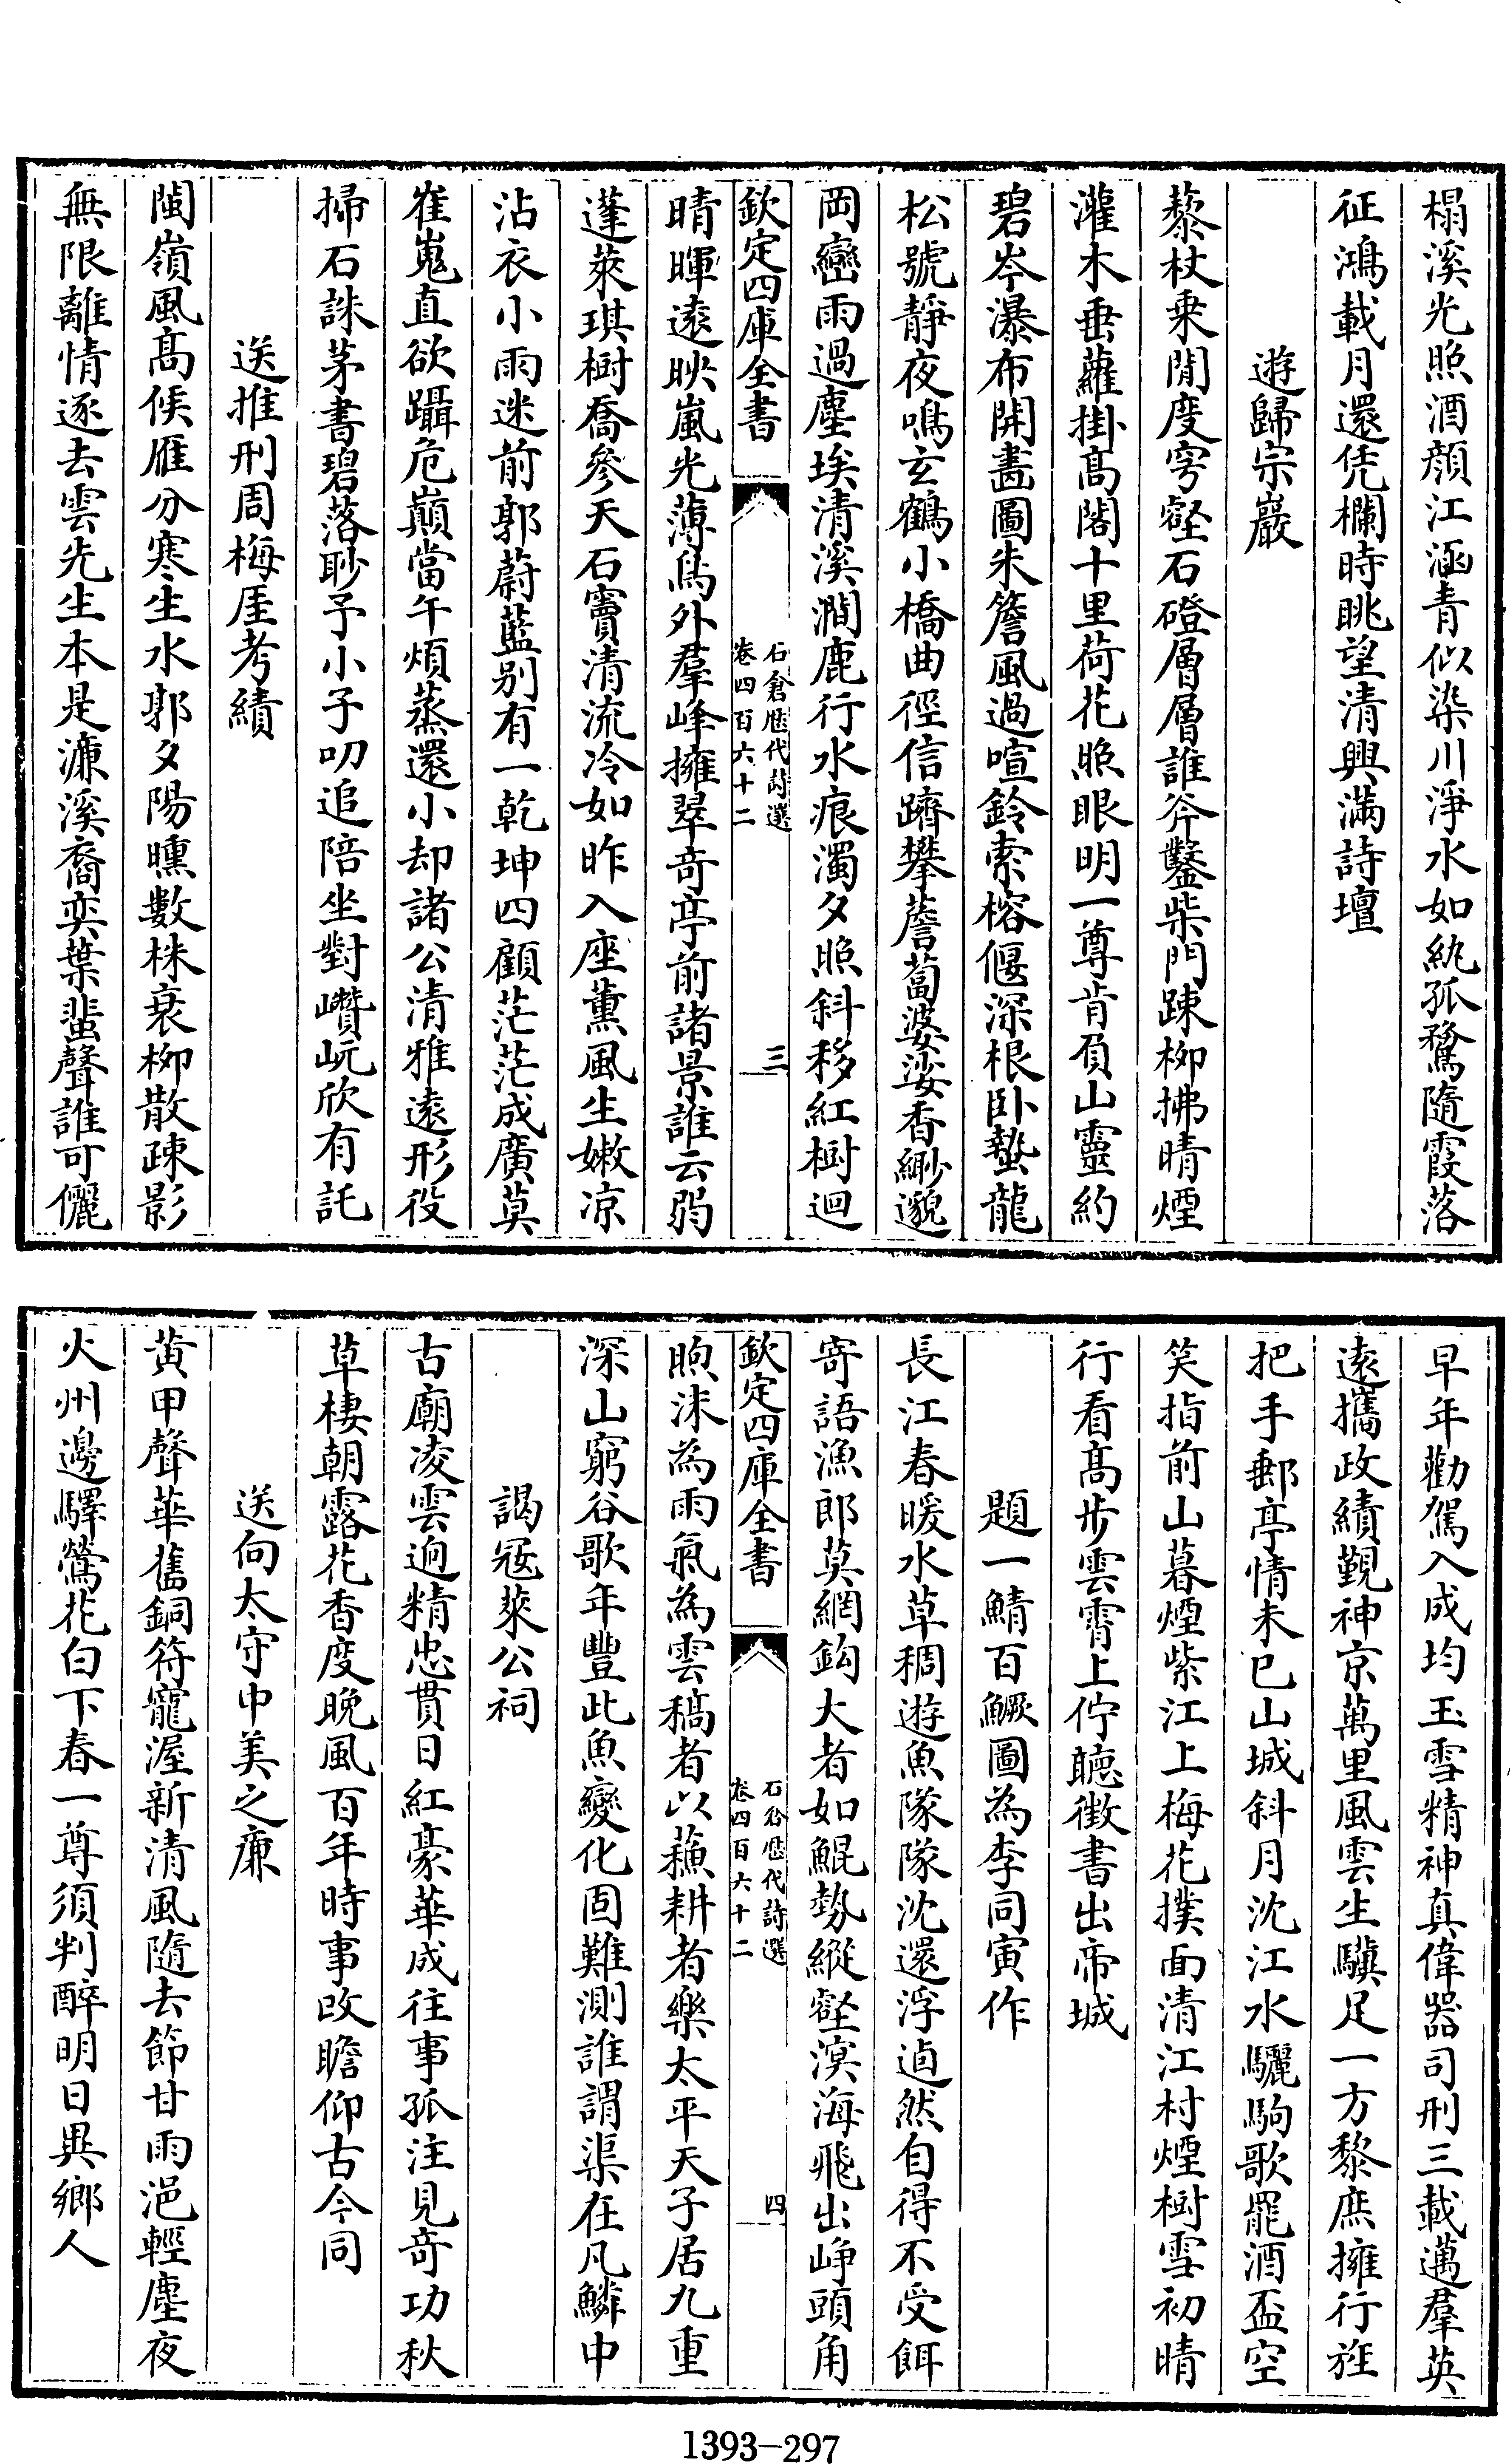 榻溪光照酒顔江涵青似染川淨水如紈孤鶩隨霞落
征鴻載月還凭欄時眺望清興滿詩壇
遊歸宗巖
藜杖乗閒度穹壑石磴層層誰斧鑿柴門踈栁拂晴煙
灌木垂蘿掛髙閣十里荷花照眼明一尊肯負山靈約
碧岑瀑布開畫圖朱簷風過喧鈴索榕偃深根卧蟄龍
松號靜夜鳴玄鶴小橋曲徑信躋攀薝蔔婆娑香緲邈
岡巒雨過塵埃清溪澗鹿行水痕濁夕照斜移紅樹迴
欽定四庫全書
石倉歴代詩選
卷四百六十二
三
晴暉逺映嵐光薄鳥外羣峰擁翠竒亭前諸景誰云弱
蓬萊琪樹喬參天石竇清流冷如昨入座薰風生嫩凉
沾衣小雨迷前郭蔚藍别有一乾坤四顧茫茫成廣莫
崔嵬直欲躡危巔當午煩蒸還小却諸公清雅逺形役
掃石誅茅書碧落眇予小子叨追陪坐對巑岏欣有託
送推刑周梅厓考績
閩嶺風髙候雁分寒生水郭夕陽曛數株衰栁散疎影
無限離情逐去雲先生本是濓溪裔奕葉蜚聲誰可儷
早年勸駕入成均玉雪精神真偉器司刑三載邁羣英
逺攜政績覲神京萬里風雲生驥足一方黎庶擁行旌
把手郵亭情未已山城斜月沈江水驪駒歌罷酒盃空
笑指前山暮煙紫江上梅花撲面清江村煙樹雪初晴
行看髙步雲霄上佇聽徴書出帝城
題一鯖百鱖圖為李同寅作
長江春暖水草稠遊魚隊隊沈還浮逌然自得不受餌
寄語漁郎莫網鈎大者如鯤勢縱壑溟海飛出崢頭角
呴沫為雨氣為雲稿者以蘓耕者樂太平天子居九重
深山窮谷歌年豐此魚變化固難測誰謂渠在凡鱗中
欽定四庫全書
石倉歴代詩選
卷四百六十二
四
謁冦萊公祠
古廟凌雲逈精忠貫日紅豪華成往事孤注見竒功秋
草棲朝露花香度晚風百年時事改瞻仰古今同
送向太守中美之亷
黄甲聲華舊銅符寵渥新清風隨去節甘雨浥輕塵夜
火州邊驛鶯花白下春一尊須判醉明日異鄉人
1393—297